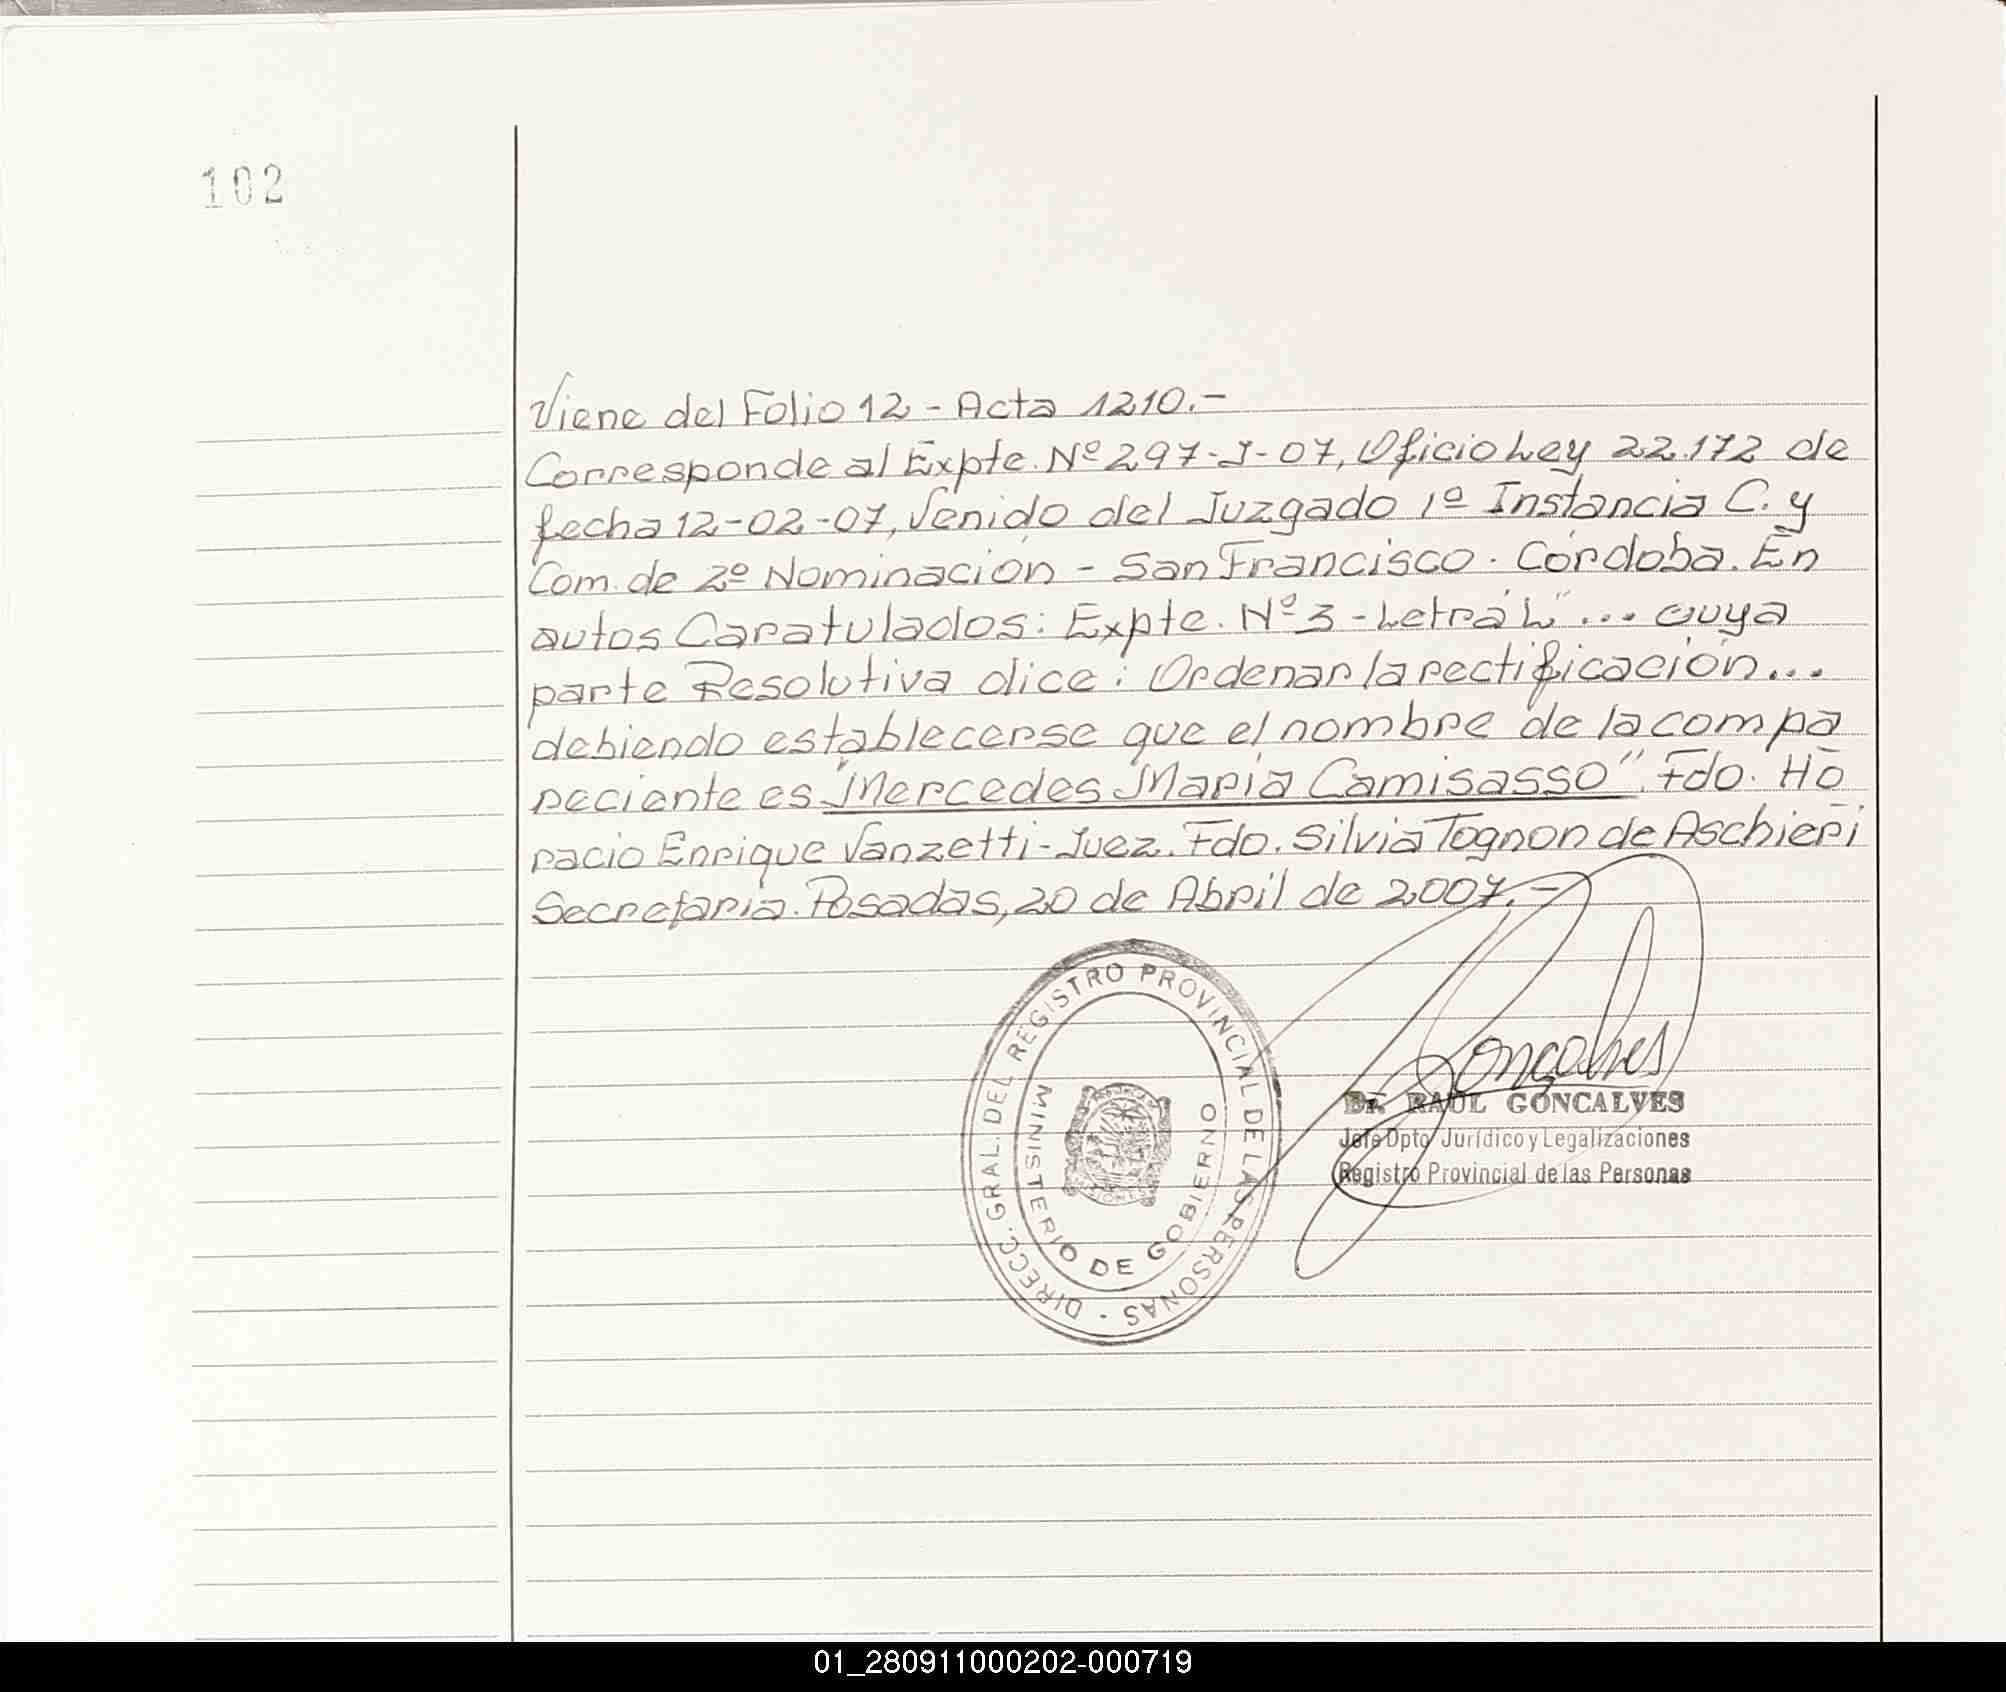 102
Viene del Folio 12 - Acta 1210.-
Corresponde al Expte. Nº 297-J-07, Oficio Ley 22.172 de
fecha 12-02-07, Venido del Juzgado 1º Instancia C. y
Com. de 2º Nominación - San Francisco. Córdoba. En
autos Caratulados: Expte. Nº 3 - Letra "L" ... cuya
parte Resolutiva dice: Ordenar la rectificación...
debiendo establecerse que el nombre de la compa
reciente es "Mercedes María Camisasso". Fdo. Ho
racio Enrique Vanzetti - Juez. Fdo. Silvia Tognon de Aschieri
Secretaria. Posadas, 20 de Abril de 2007.-
DIRECC. GRAL. DEL REGISTRO PROVINCIAL DE LAS PERSONAS -
MINISTERIO DE GOBIERNO
Goncalves
Dr. RAUL GONCALVES
Jefe Dpto Jurídico y Legalizaciones
Registro Provincial de las Personas
01_280911000202-000719